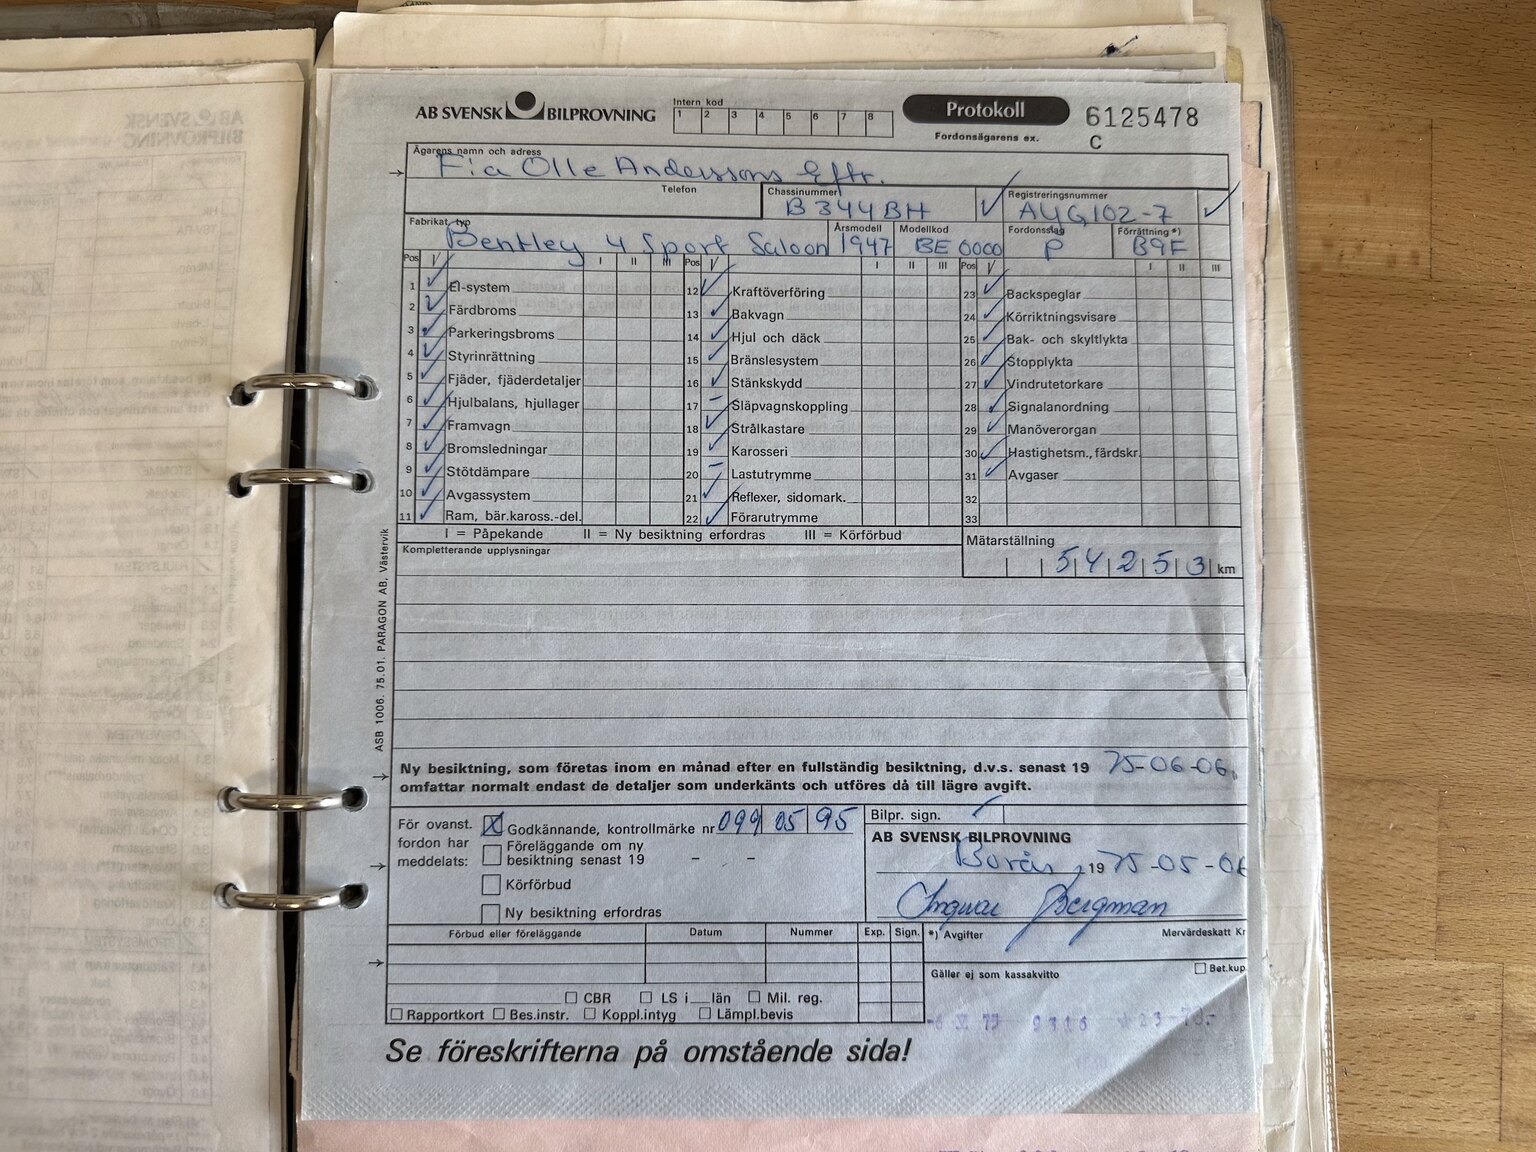 AB SVENSK BILPROVNING
Intern kod
1 2 3 4 5 6 7 8
Protokoll
Fordonsägarens ex.
6125478
C
Ägarens namn och adress
F:a Olle Anderssons Eftr.
Telefon
Chassinummer
B344BH
Registreringsnummer
AYG102-7
Fabrikat, typ
Bentley 4 Sport Saloon
Årsmodell
1947
Modellkod
BE 0000
Fordonsslag
P
Förrättning *)
B9F
Pos V I II III Pos V I II III Pos V I II III
1 El-system
2 Färdbroms
3 Parkeringsbroms
4 Styrinrättning
5 Fjäder, fjäderdetaljer
6 Hjulbalans, hjullager
7 Framvagn
8 Bromsledningar
9 Stötdämpare
10 Avgassystem
11 Ram, bär.kaross.-del.
12 Kraftöverföring
13 Bakvagn
14 Hjul och däck
15 Bränslesystem
16 Stänkskydd
17 – Släpvagnskoppling
18 Strålkastare
19 Karosseri
20 – Lastutrymme
21 Reflexer, sidomark.
22 Förarutrymme
23 Backspeglar
24 Körriktningsvisare
25 Bak- och skyltlykta
26 Stopplykta
27 Vindrutetorkare
28 Signalanordning
29 Manöverorgan
30 Hastighetsm., färdskr.
31 Avgaser
32
33
I = Påpekande II = Ny besiktning erfordras III = Körförbud
Mätarställning
54253 km
Kompletterande upplysningar
ASB 1006. 75.01. PARAGON AB, Västervik
Ny besiktning, som företas inom en månad efter en fullständig besiktning, d.v.s. senast 19 75-06-06.
omfattar normalt endast de detaljer som underkänts och utföres då till lägre avgift.
För ovanst. fordon har meddelats:
X Godkännande, kontrollmärke nr 099 05 95
Föreläggande om ny
besiktning senast 19 – –
Körförbud
Ny besiktning erfordras
Bilpr. sign.
AB SVENSK BILPROVNING
Borås, 19 75-05-06
Ingvar Bergman
Förbud eller föreläggande Datum Nummer Exp. Sign.
*) Avgifter Mervärdeskatt Kr
Gäller ej som kassakvitto
Bet.kup
CBR LS i län Mil. reg.
Rapportkort Bes.instr. Koppl.intyg Lämpl.bevis
Se föreskrifterna på omstående sida!